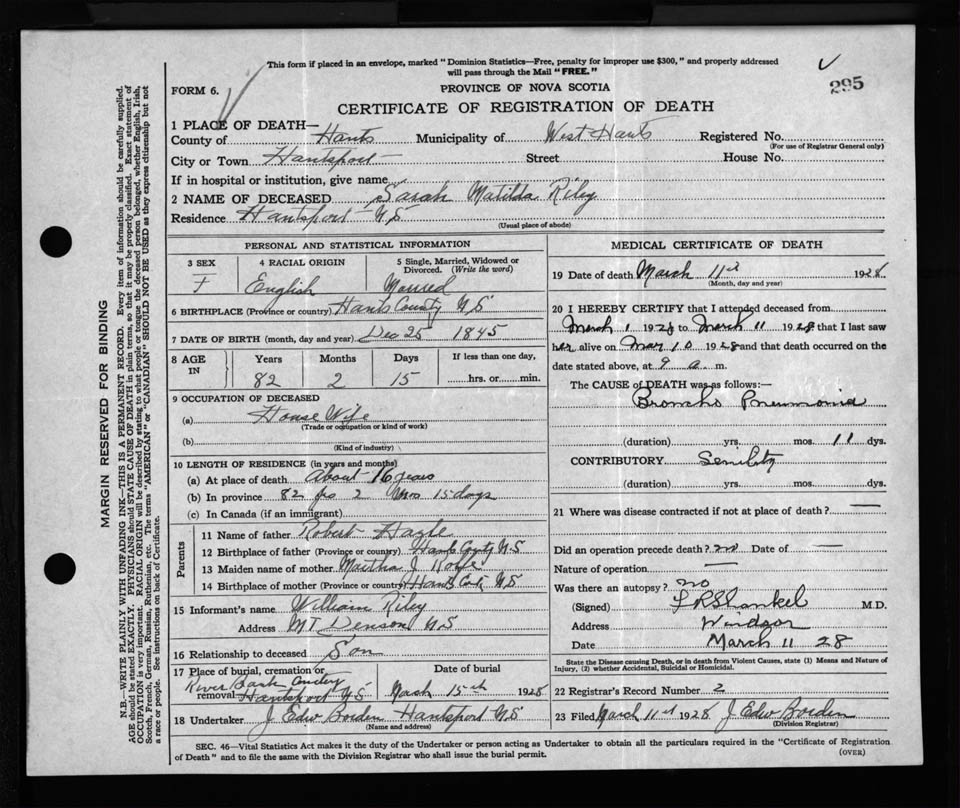 This form if placed in an envelope, marked "Dominion Statistics—Free, penalty for improper use $300," and properly addressed
will pass through the Mail "FREE."
295
FORM 6.
PROVINCE OF NOVA SCOTIA
CERTIFICATE OF REGISTRATION OF DEATH
1 PLACE OF DEATH—
County of Hants Municipality of West Hants Registered No.
(For use of Registrar General only)
City or Town Hantsport Street House No.
If in hospital or institution, give name
2 NAME OF DECEASED Sarah Matilda Riley
Residence Hantsport NS
(Usual place of abode)
PERSONAL AND STATISTICAL INFORMATION
3 SEX 4 RACIAL ORIGIN 5 Single, Married, Widowed or
Divorced. (Write the word)
F English Married
6 BIRTHPLACE (Province or country) Hants County NS
7 DATE OF BIRTH (month, day and year) Dec 25 1845
8 AGE IN Years Months Days If less than one day,
82 2 15 hrs. or min.
9 OCCUPATION OF DECEASED
(a) House Wife
(Trade or occupation or kind of work)
(b)
(Kind of industry)
10 LENGTH OF RESIDENCE (in years and months)
(a) At place of death About 16 years
(b) In province 82 yrs 2 mos 15 days
(c) In Canada (if an immigrant)
Parents
11 Name of father Robert
12 Birthplace of father (Province or country) Hants County NS
13 Maiden name of mother Martha J
14 Birthplace of mother (Province or country) Hants NS
15 Informant's name William Riley
Address MT Denson NS
16 Relationship to deceased Son
17 Place of burial, cremation or Date of burial
River Bank
removal Hantsport NS March 15th 1928
18 Undertaker J Edw Borden Hantsport NS
(Name and address)
MEDICAL CERTIFICATE OF DEATH
19 Date of death March 11 1928
(Month, day and year)
20 I HEREBY CERTIFY that I attended deceased from
March 1 1928 to March 11 1928 that I last saw
her alive on Mar 10 1928 and that death occurred on the
date stated above, at 9 a. m.
The CAUSE of DEATH was as follows:—
Broncho Pneumonia
(duration) yrs. mos. 11 dys.
CONTRIBUTORY Senility
(duration) yrs. mos. dys.
21 Where was disease contracted if not at place of death? —
Did an operation precede death? no Date of —
Nature of operation —
Was there an autopsy? no
(Signed) M.D.
Address Windsor
Date March 11 28
State the Disease causing Death, or in death from Violent Causes, state (1) Means and Nature of
Injury, (2) whether Accidental, Suicidal or Homicidal.
22 Registrar's Record Number 2
23 Filed March 11 1928 J Edw Borden
(Division Registrar)
SEC. 46—Vital Statistics Act makes it the duty of the Undertaker or person acting as Undertaker to obtain all the particulars required in the "Certificate of Registration
of Death" and to file the same with the Division Registrar who shall issue the burial permit.
(OVER)
MARGIN RESERVED FOR BINDING
N.B.—WRITE PLAINLY WITH UNFADING INK—THIS IS A PERMANENT RECORD. Every item of information should be carefully supplied.
AGE should be stated EXACTLY. PHYSICIANS should STATE CAUSE OF DEATH in plain terms, so that it may be properly classified. Exact statement of
OCCUPATION is very important. RACIAL ORIGIN will be described by stating to what people or tongue the deceased person belonged, whether English, Irish,
Scotch, French, German, Russian, Ruthenian, etc. The terms "AMERICAN" or "CANADIAN" SHOULD NOT BE USED as they express citizenship but not
a race or people. See instructions on back of Certificate.